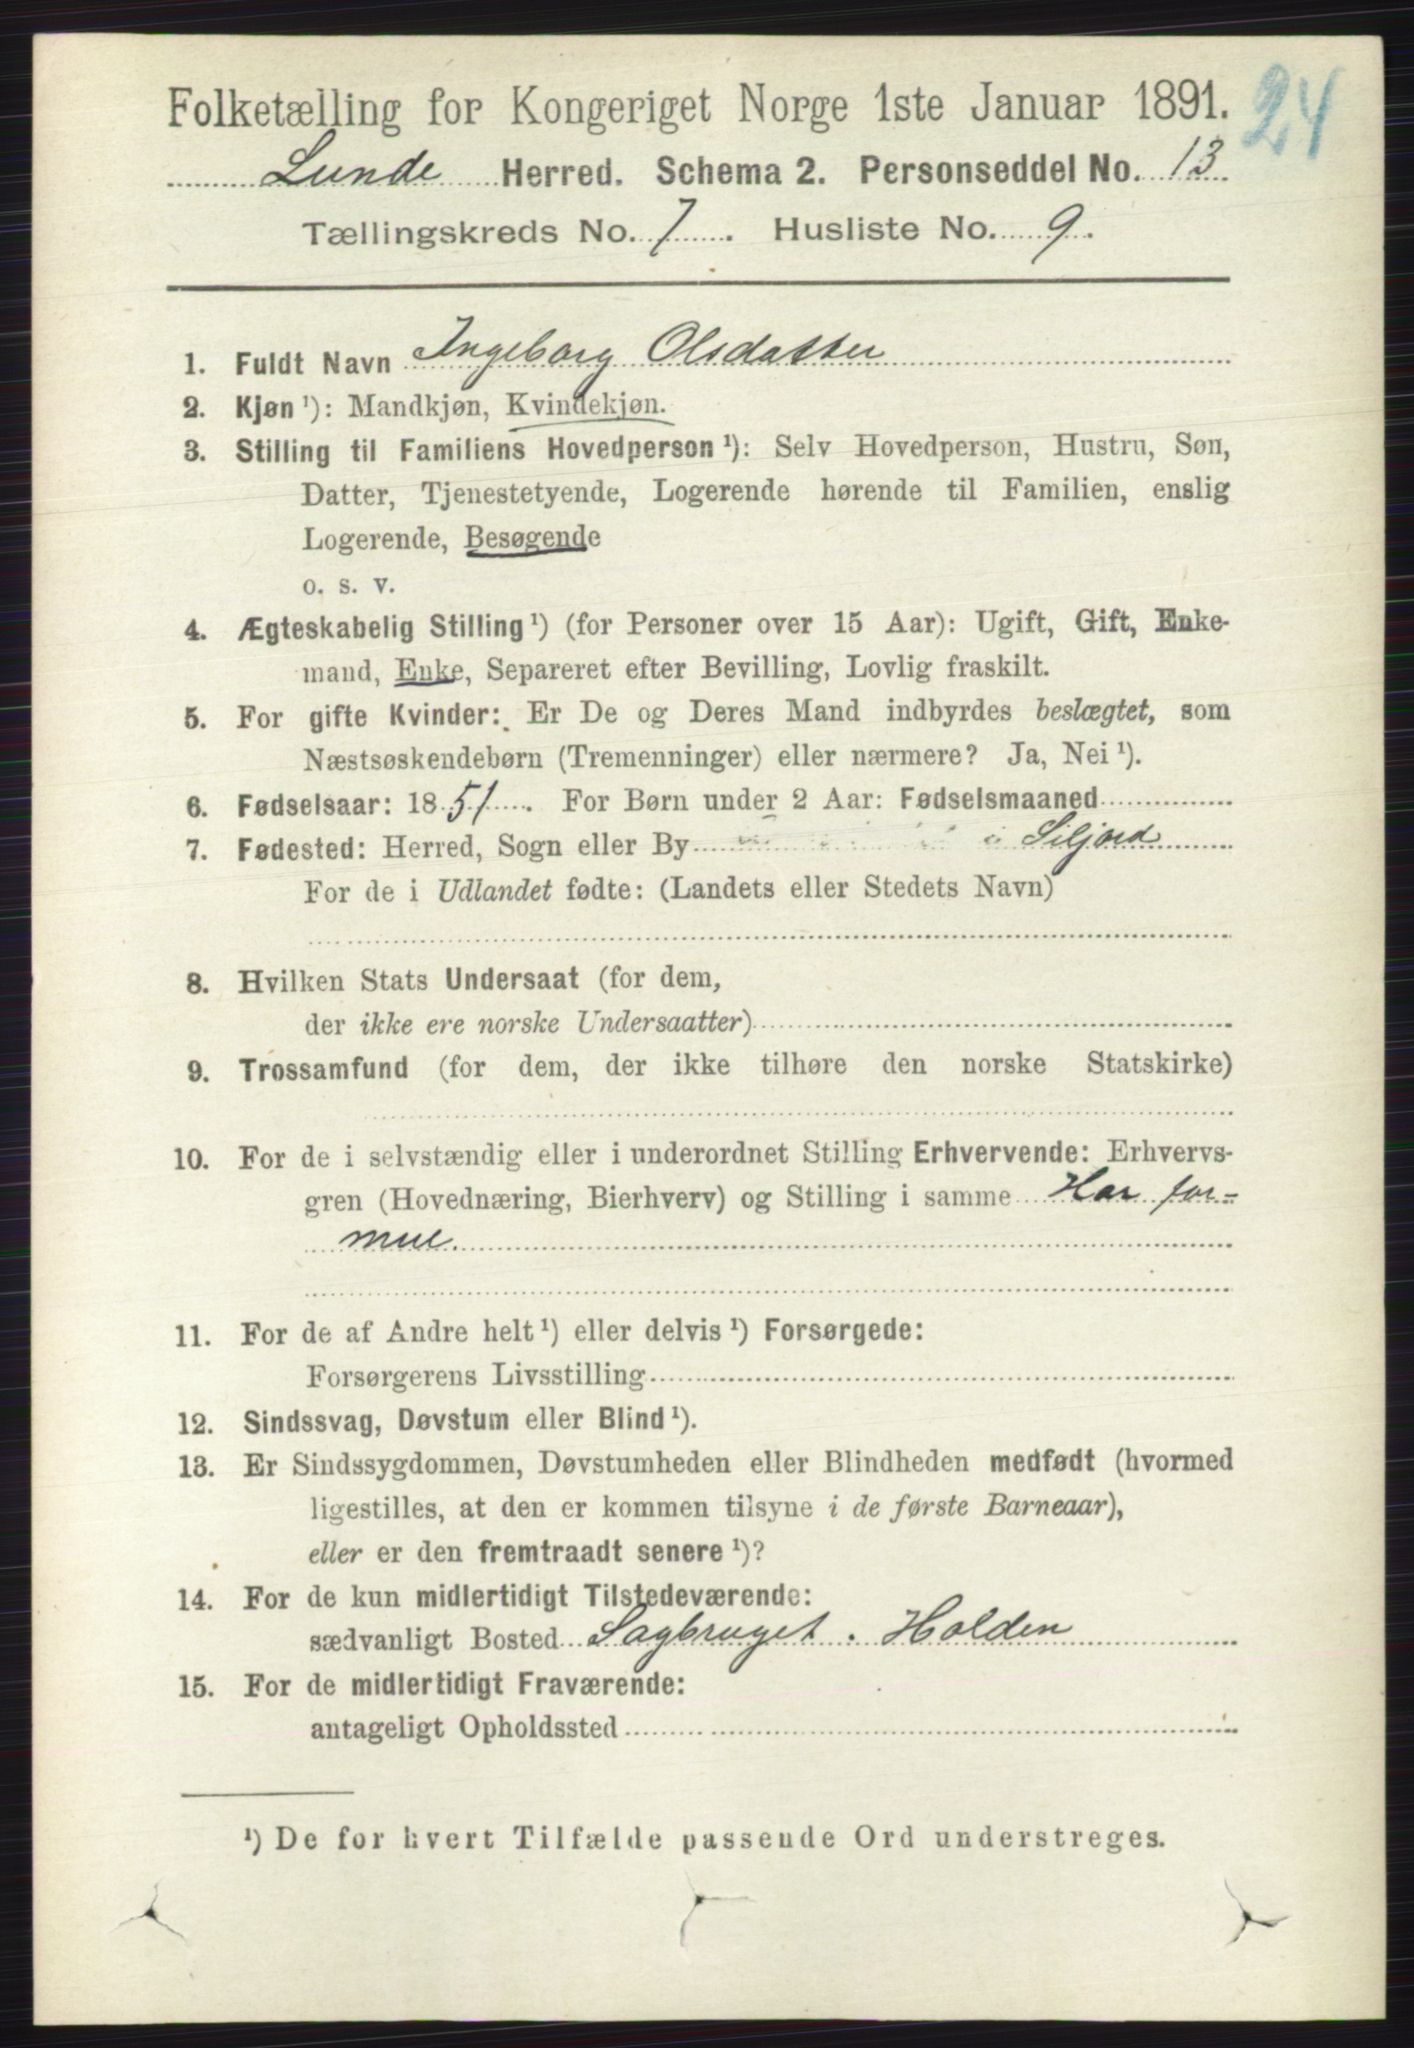 24
Folketælling for Kongeriget Norge 1ste Januar 1891.
Lunde Herred. Schema 2. Personseddel No. 13
Tællingskreds No. 7. Husliste No. 9.
1. Fuldt Navn Ingeborg Olsdatter
2. Kjøn ¹): Mandkjøn, Kvindekjøn.
3. Stilling til Familiens Hovedperson ¹): Selv Hovedperson, Hustru, Søn,
Datter, Tjenestetyende, Logerende hørende til Familien, enslig
Logerende, Besøgende
o. s. v.
4. Ægteskabelig Stilling ¹) (for Personer over 15 Aar): Ugift, Gift, Enke-
mand, Enke, Separeret efter Bevilling, Lovlig fraskilt.
5. For gifte Kvinder: Er De og Deres Mand indbyrdes beslægtet, som
Næstsøskendebørn (Tremenninger) eller nærmere? Ja, Nei ¹).
6. Fødselsaar: 1851. For Børn under 2 Aar: Fødselsmaaned
7. Fødested: Herred, Sogn eller By Siljord
For de i Udlandet fødte: (Landets eller Stedets Navn)
8. Hvilken Stats Undersaat (for dem,
der ikke ere norske Undersaatter)
9. Trossamfund (for dem, der ikke tilhøre den norske Statskirke)
10. For de i selvstændig eller i underordnet Stilling Erhvervende: Erhvervs-
gren (Hovednæring, Bierhverv) og Stilling i samme Har for-
mue.
11. For de af Andre helt ¹) eller delvis ¹) Forsørgede:
Forsørgerens Livsstilling
12. Sindssvag, Døvstum eller Blind ¹).
13. Er Sindssygdommen, Døvstumheden eller Blindheden medfødt (hvormed
ligestilles, at den er kommen tilsyne i de første Barneaar),
eller er den fremtraadt senere ¹)?
14. For de kun midlertidigt Tilstedeværende:
sædvanligt Bosted Sagbruget. Holden
15. For de midlertidigt Fraværende:
antageligt Opholdssted
¹) De for hvert Tilfælde passende Ord understreges.